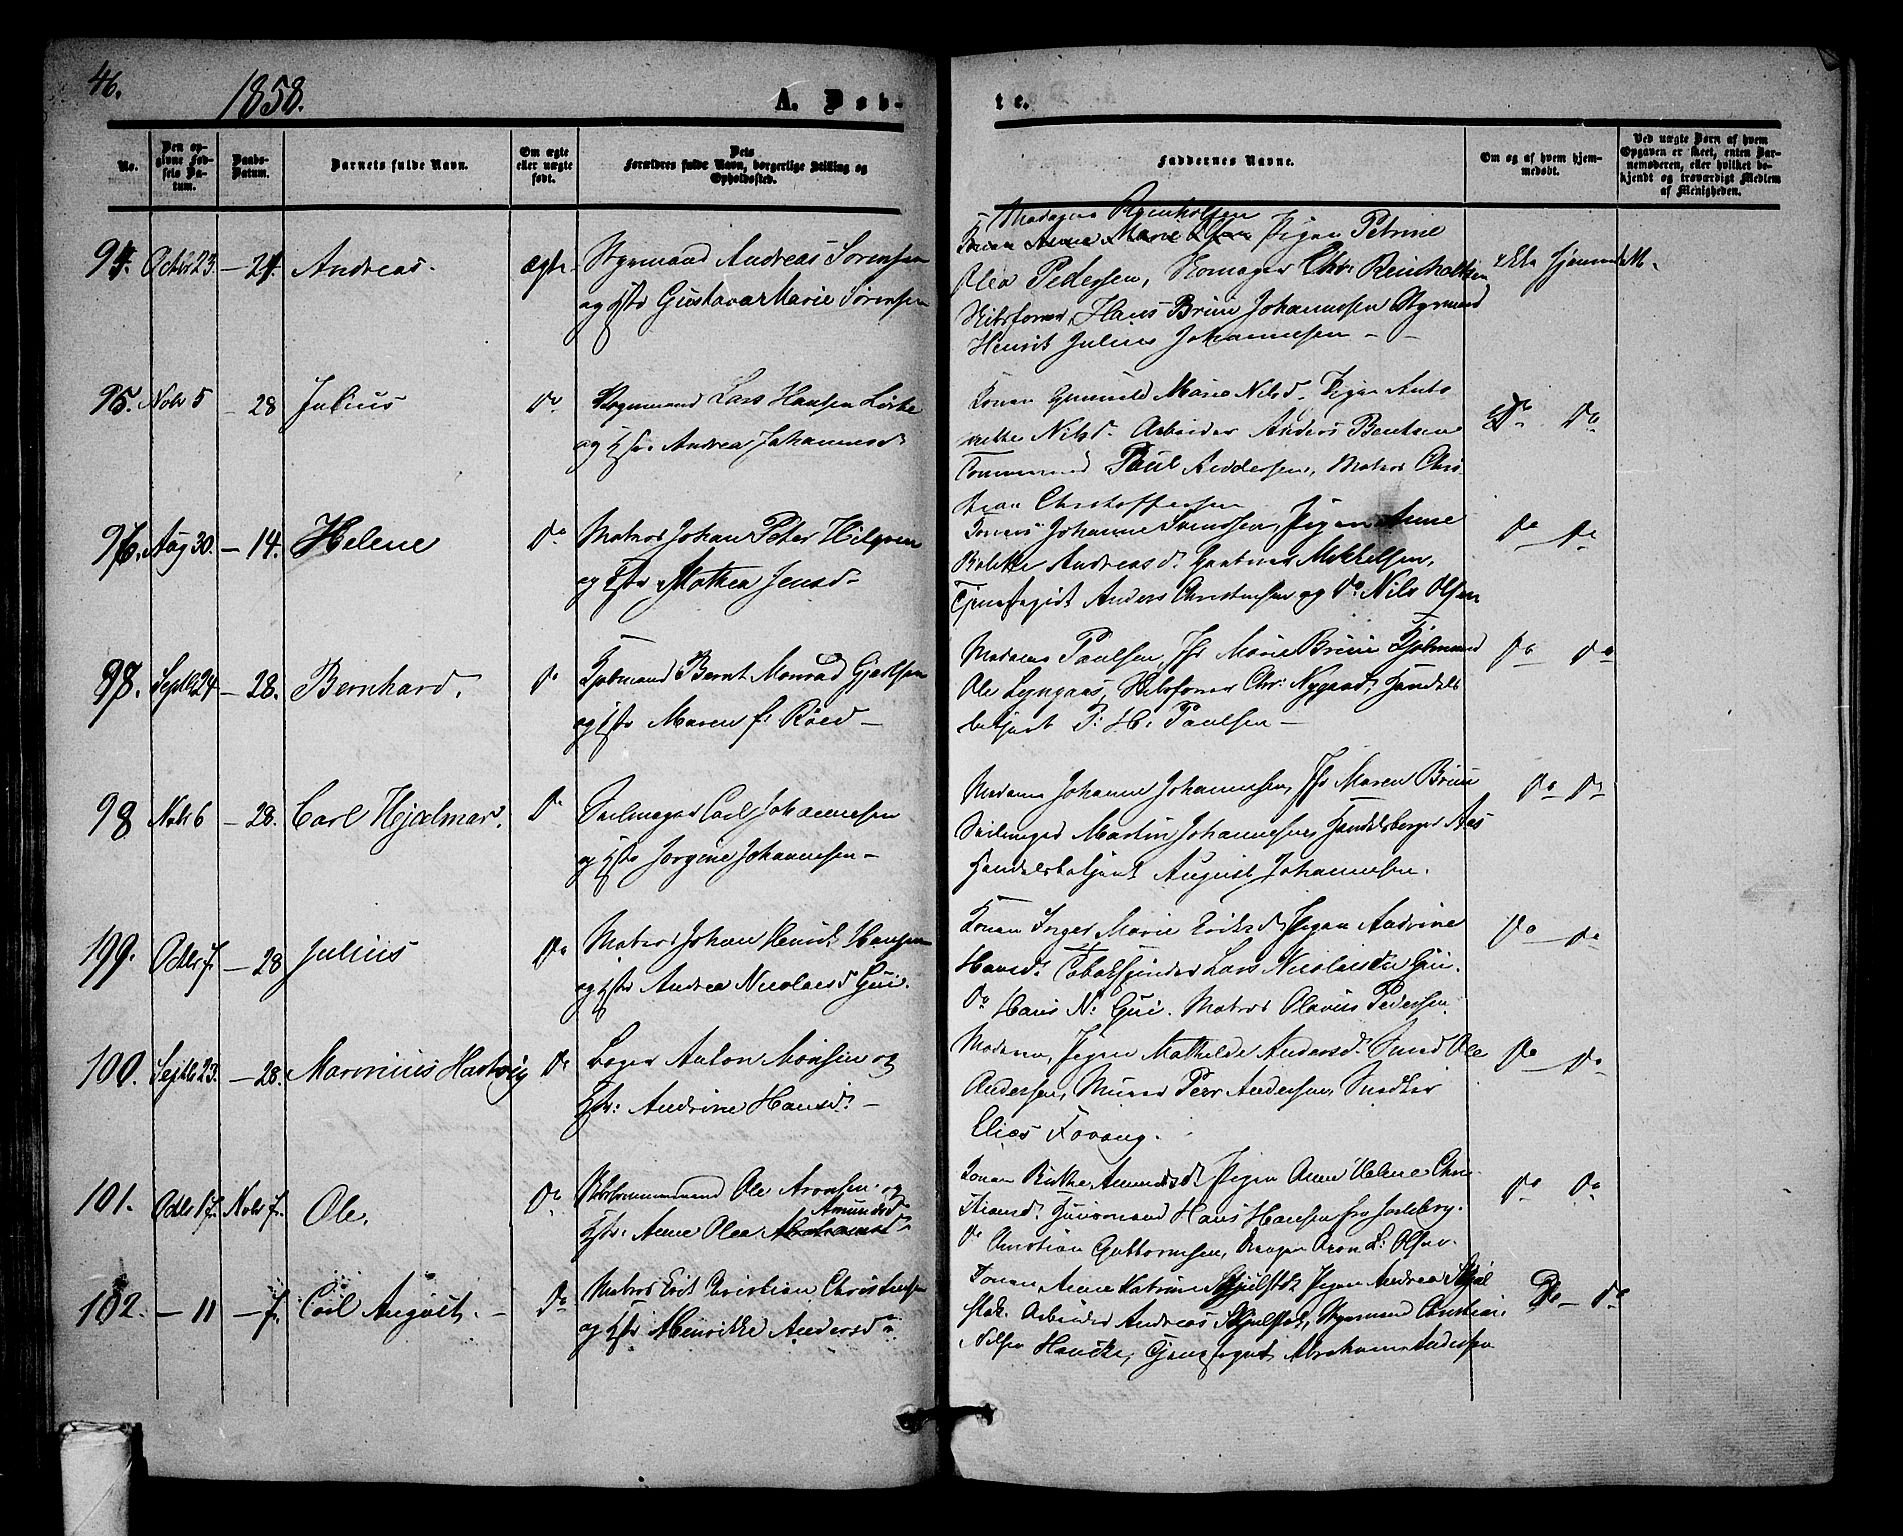 46.
1858.
A. Døb-
te.
No.
Den op-
givne Fød-
sels Da-
tum.
Daabs-
Datum.
Barnets fulde Navn.
Om ægte
eller uægte
født.
Dets
Forældres fulde Navn, borgerlige Stilling og
Opholdssted.
Faddernes Navne.
Om og af hvem hjem-
medøbt.
Ved uægte Barn af hvem
Opgaven er skeet, enten Bar-
nemoderen, eller hvilket be-
kjendt og troværdigt Medlem
af Menigheden.
94. Octbr 23. — 24. Andreas. ægte. Styrmand Andreas Sørensen
og Hstr Gustava Marie Sørensen
Madame Reinholtsen
Konen Anne Marie Pigen Petrine
Olea Pedersen, Skomager Chr: Reinholtsen
Skibsfører Hans Bruu Johannesen Styrmand
Henrik Julius Johannesen —
ikke hjemmedøbt.
95. Nobr 5 — 28 Julius Do Styrmand Lars Hansen
og Hstr. Andrea Johannesd.
Konen Gunnild Marie Nilsd. Pigen Anto
nette Nilsd. Arbeider Anders Bentsen
Tømmermand Paul Andersen, Matros Chri
stian Christoffersen
Do Do
96. Aug 30. — 14. Helene Do Matros Johan Peter
og Hstr Mathea Jensd.
Konen Johanne Svendsen, Pigen Anne
Bolette Andreasd. Mekkelsen,
Anders Christensen og Do Nils Olsen
Do — Do
97. Septbr 24 — 28. Bernhard. Do Kjøbmand Bernt Monrad Gjertsen
og Hstr Maren f: Röed —
Madame Paulsen, Jfr Marie Bruu Kjøbmand
Ole Lyngaas, Skibsfører Chr: Nygaard, Handels
betjent P: H: Paulsen —
Do — Do
98 Nobr 6 — 28. Carl Hjalmar. Do Seilmager Carl Johannesen
og Hstr Jørgine Johannesen —
Madame Johanne Johannesen, Jfr Maren Bruu
Seilmager Martin Johannesen, Handelsborger Aas
Handelsbetjent August Johannesen.
Do Do
199. Octbr 7. — 28 Julius Do Matros Johan Henrik Hansen
og Hstr Andrea Nicolaisd Gui.
Konen Inger Marie Eriksd. Pigen Andrine
Hansd. Tobakspinder Lars Nicolaisen Gui.
Do Hans N: Gui. Matros Olavus Pedersen.
Do — Do
100. Septbr 23. — 28. Marinius Hartvig Do Bager Anton Monsen og
Hstr: Andrine Hansd. —
Madame, Pigen Mathilde Andersd. Smed Ole
Andersen, Murer Peer Andersen, Snedker
Elias Fovang.
Do — Do
101. Octbr 17. Nobr 7. Ole. Do Ole Aronsen og
Amundsd
Hstr: Anne Olea Abrahamsd.
Konen Birthe Amundsd. Pigen Anne Helene Chri
stiansd. Huusmand Hans Hansen fra
Do Christian Guttormsen, Aron L: Olsen.
Do Do
102. — 11 — 7. Carl August. — Do Matros Erik Christian Christensen
og Hstr Henrikke Andersd.
Konen Anne Katrine Skjelstd. Pigen Andrea Skjel
stad. Arbeider Andreas Skjelstad, Styrmand Christian
Nilsen Hancke, Abraham Andersen
Do — Do